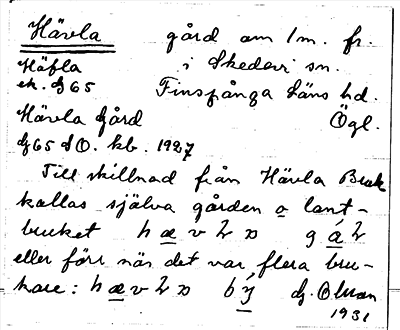 Hävla gård om 1 m. fr.
Häfla i Skedevi sn.
ek. G 65 Finspånga läns hd.
Hävla Gård Ögl.
G 65 SO. kb. 1927
Till skillnad från Hävla Bruk
kallas själva gården o lant-
bruket h æ v
eller förr när det var flera bru-
kare: h æ v b y G. Olson
1931